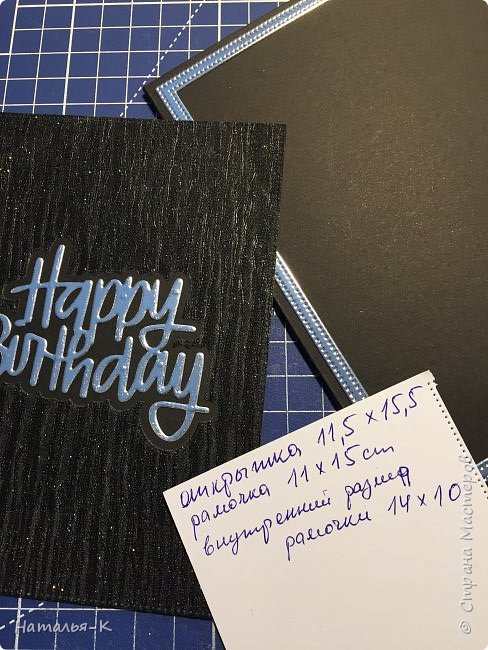 Happy
Birthday
открытка 11,5 x 15,5
рамочка 11 x 15 cm
внутренний размер
рамочки 14 x 10
Наталья-К
© Страна Мастеров